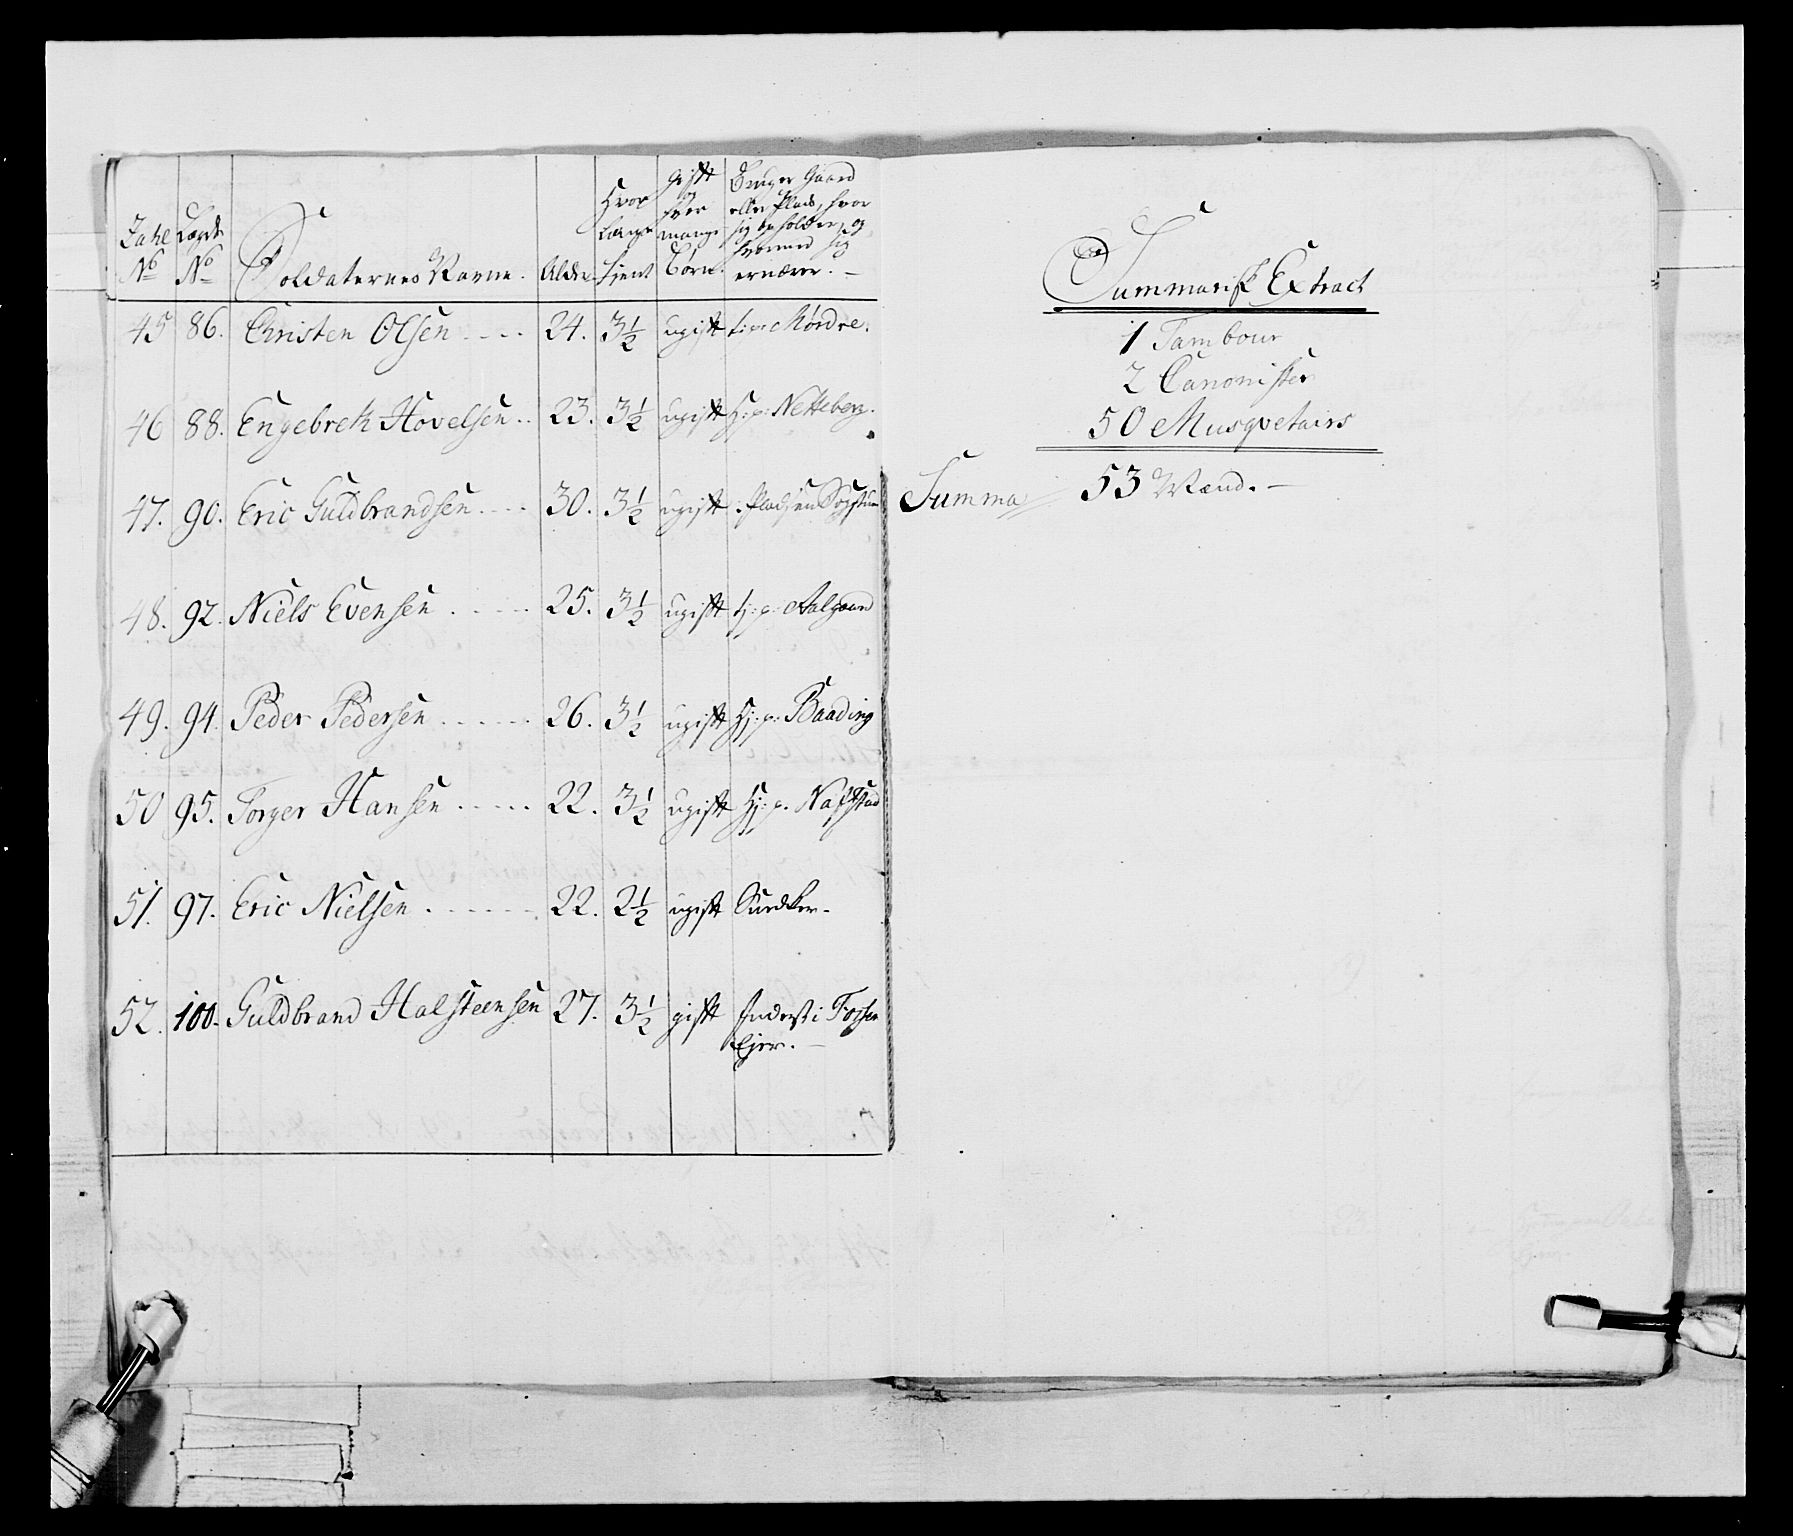 Zahl No
Lægds No
Soldaternes Navne.
Alder
Hvor længe tient
gift og hvor mange Børn.
Bruger Gaard eller Plads, hvor sig opholder, og hvormed sig ernærer. —
45 86. Christen Olsen . . . . 24. 3 1/2 ugift t: p: Mørdre.
46 88. Engebreth Hovelsen . . 23. 3 1/2 ugift Hj: p: Netteberg.
47. 90. Eric Guldbrandsen . . . . 30. 3 1/2 ugift Pladsen
48. 92. Niels Evensen . . . . . 25. 3 1/2 ugift tj: p: Aalgaard
49. 94. Peder Pedersen . . . . . 26. 3 1/2 ugift Hj: p: Baading
50 95. Torger Hansen . . . . . 22. 3 1/2 ugift Hj: p.
51. 97. Eric Nielsen . . . . . . 22. 2 1/2 ugift Snedker.
52. 100. Guldbrand Halsteensen 27. 3 1/2 gift Inderst i
Ejer. —
Summarisk Extract
1 Tambour
2 Canonister
50 Musqvetairs
Summa 53 Mænd. —